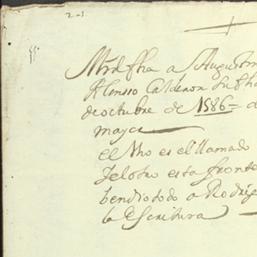 2-1
a Augustin
Alonsso Calderon su
de octubre de 1586 =
maya
el Uno es el llamado
Yelotro esta fronte
bendio todo a Rodrig
la Escritura